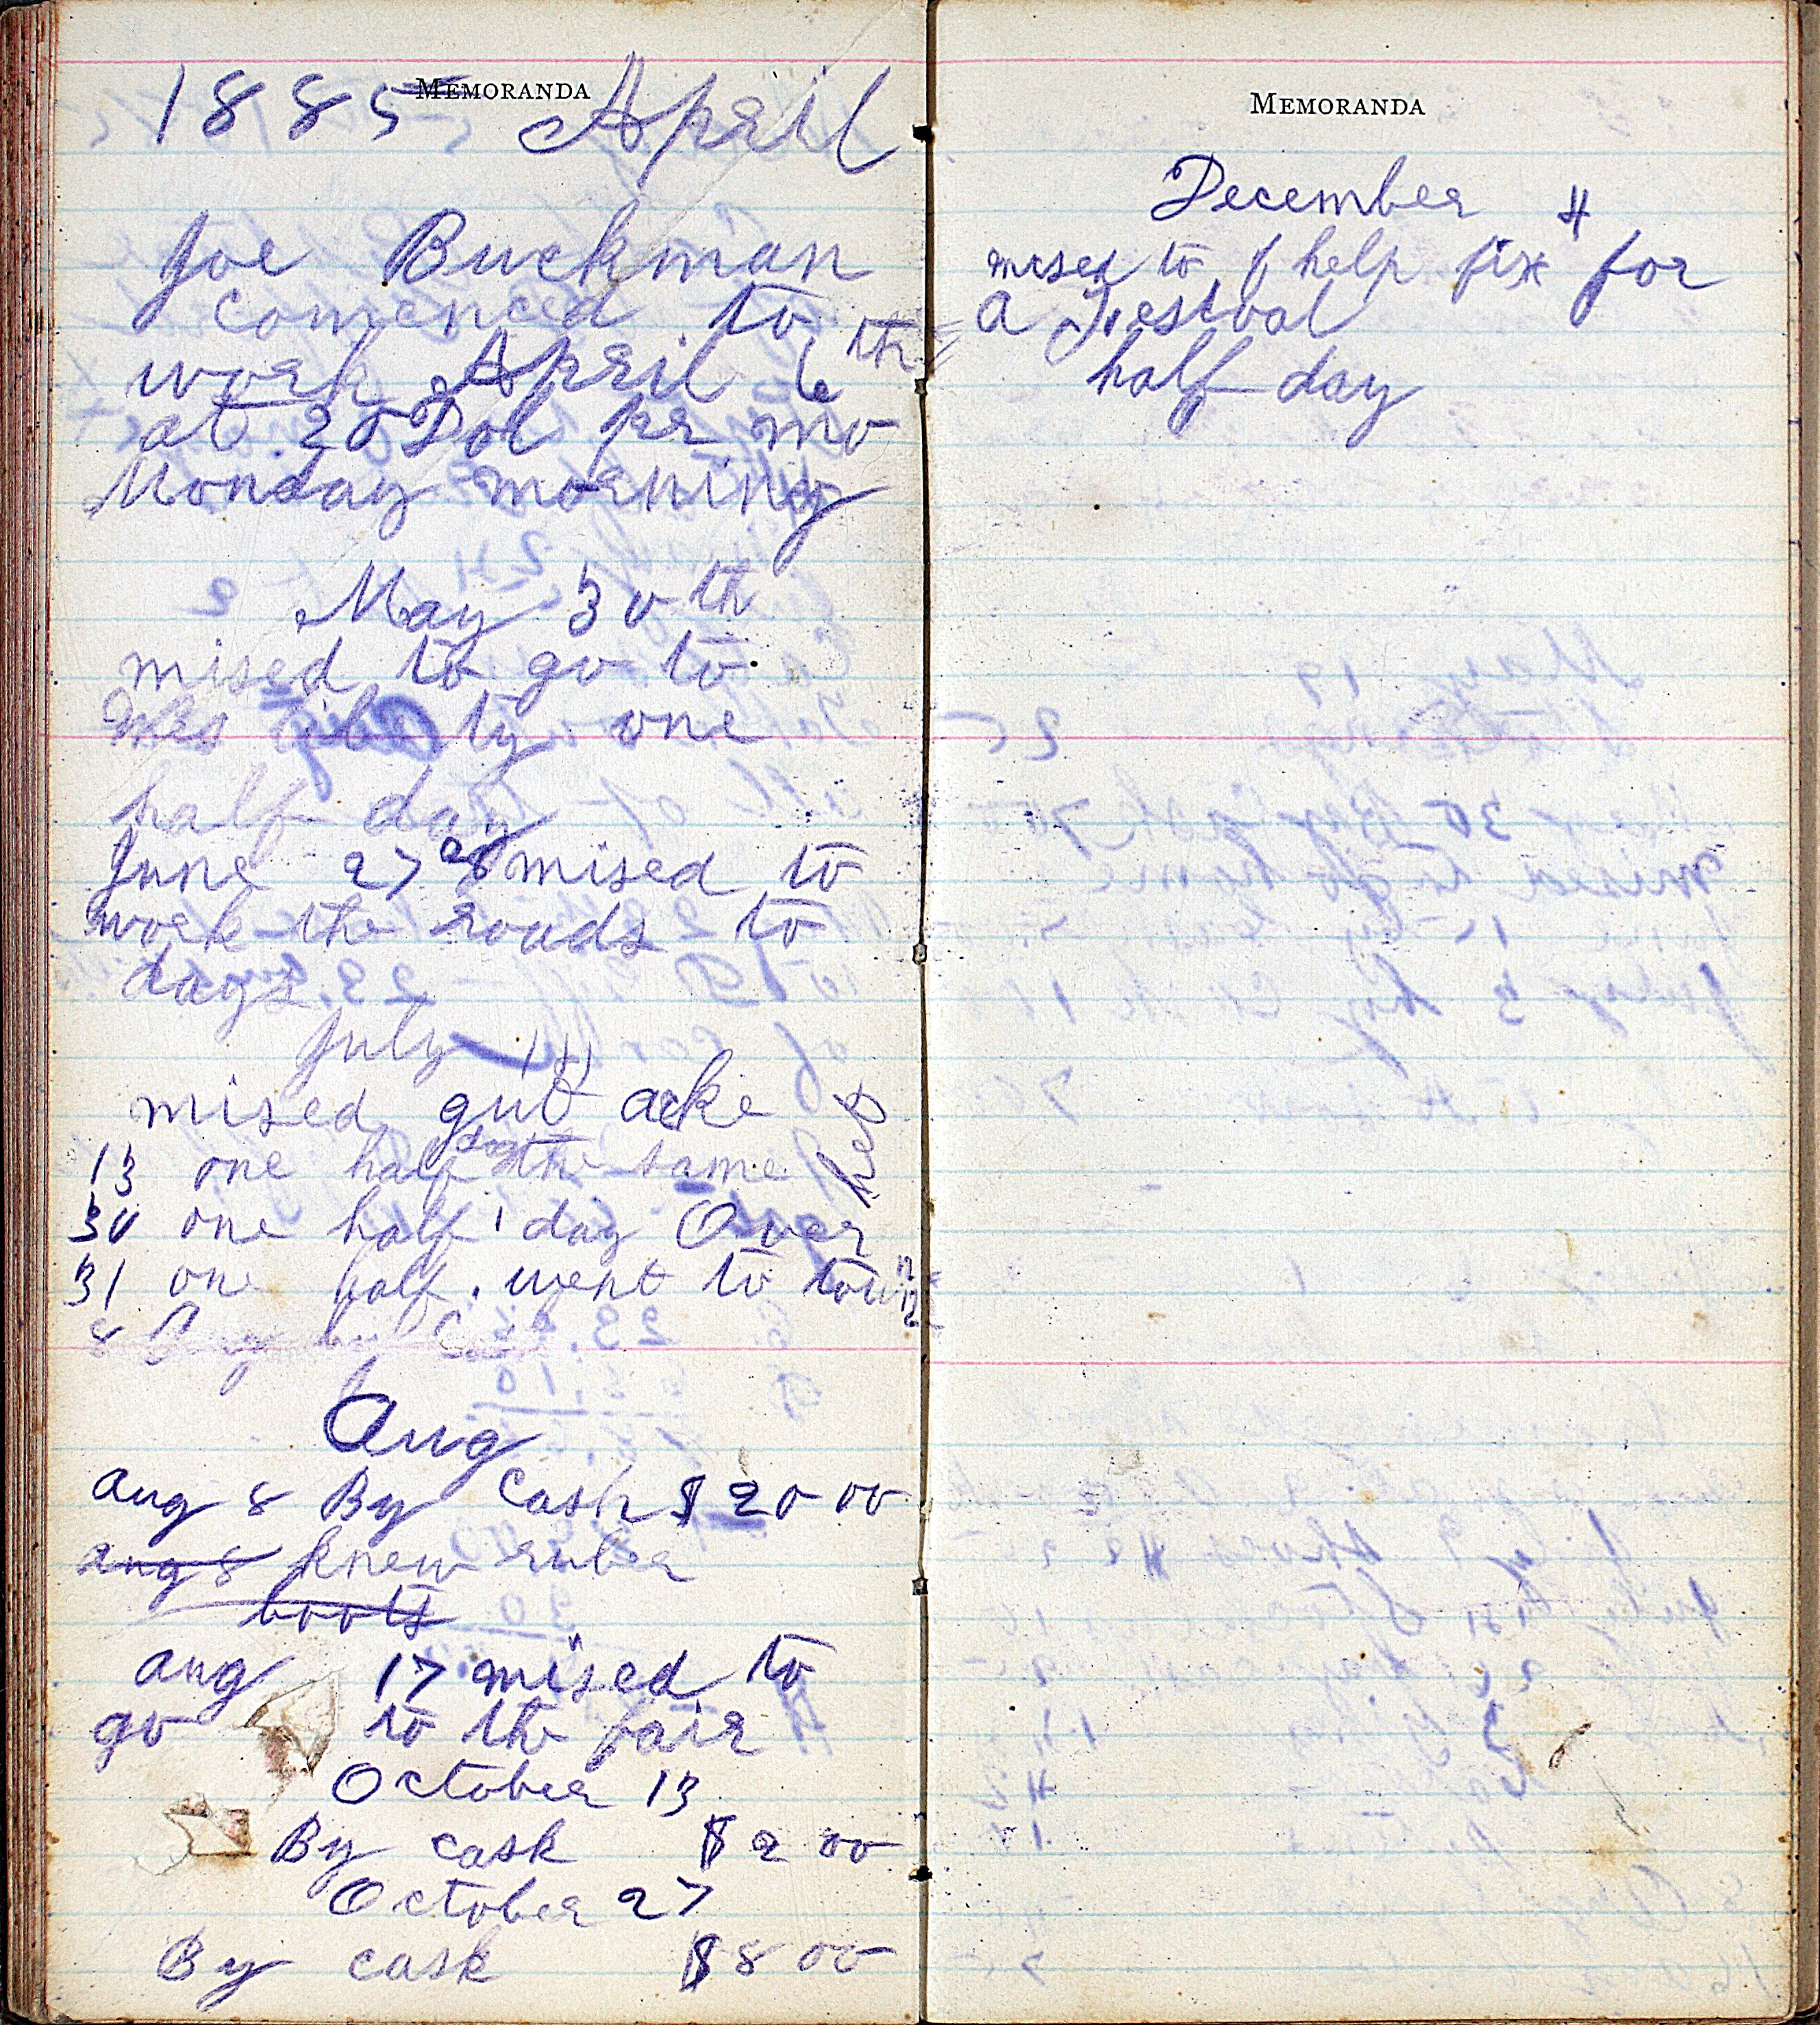 MEMORANDA
1885 April
Joe Buckman
comenced to
work April 6th
at 20 Dol pr mo
Monday morning
May 30th
mised to go to
Wes liberty one
half day
June 27 28 mised to
work the roads to
days
July 11
mised gut acke
13 one half day the same
30 one half day Over
31 one half went to town
8 Aug by Cash
Aug
Aug 8 By Cash $20 00
aug 8 knew ruber
boots
aug 17 mised to
go to the fair
October 13
By cash $2 00
October 27
By cash $8 00
MEMORANDA
December 4
mised to help fix for
a Festval
half day